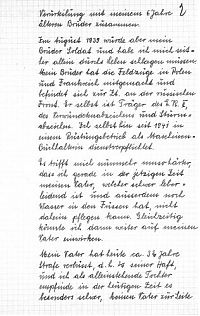 2
Verurteilung mit meinem 6 Jahre
älteren Bruder zusammen.
Im August 1939 wurde aber mein
Bruder Soldat und habe ich mich seit-
her allein durchs Leben schlagen müssen.
Mein Bruder hat die Feldzüge in Polen
und Frankreich mitgemacht und
befindet sich zur Zt. an der russischen
Front. Er selbst ist Träger des E.K. II,
des Verwundetenabzeichens und Sturm-
abzeichens. Ich selbst bin seit 1941 in
einem Rüstungsbetrieb als
dienstverpflichtet.
Es trifft mich nunmehr umso härter,
dass ich gerade in der jetzigen Zeit
meinen Vater, welcher schwer leber-
leidend ist und ausserdem noch
Wasser in den Füssen hat, nicht
daheim pflegen kann. Gleichzeitig
könnte ich dann weiter auf meinen
Vater einwirken.
Mein Vater hat heute ca. 3½ Jahre
Strafe verbüsst, d.h. in seiner Haft,
und ich als alleinstehende Tochter
empfinde in der heutigen Zeit es
besonders schwer, keinen Vater zur Seite